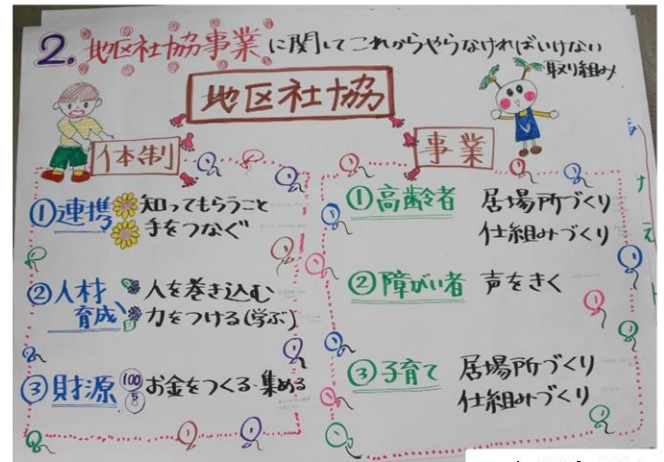 2. 地区社協事業に関してこれからやらなければいけない
取り組み
地区社協
体制
①連携 知ってもらうこと
手をつなぐ
②人材育成 人を巻き込む
力をつける(学ぶ)
③財源 100 5 お金をつくる・集める
事業
①高齢者 居場所づくり
仕組みづくり
②障がい者 声をきく
③子育て 居場所づくり
仕組みづくり